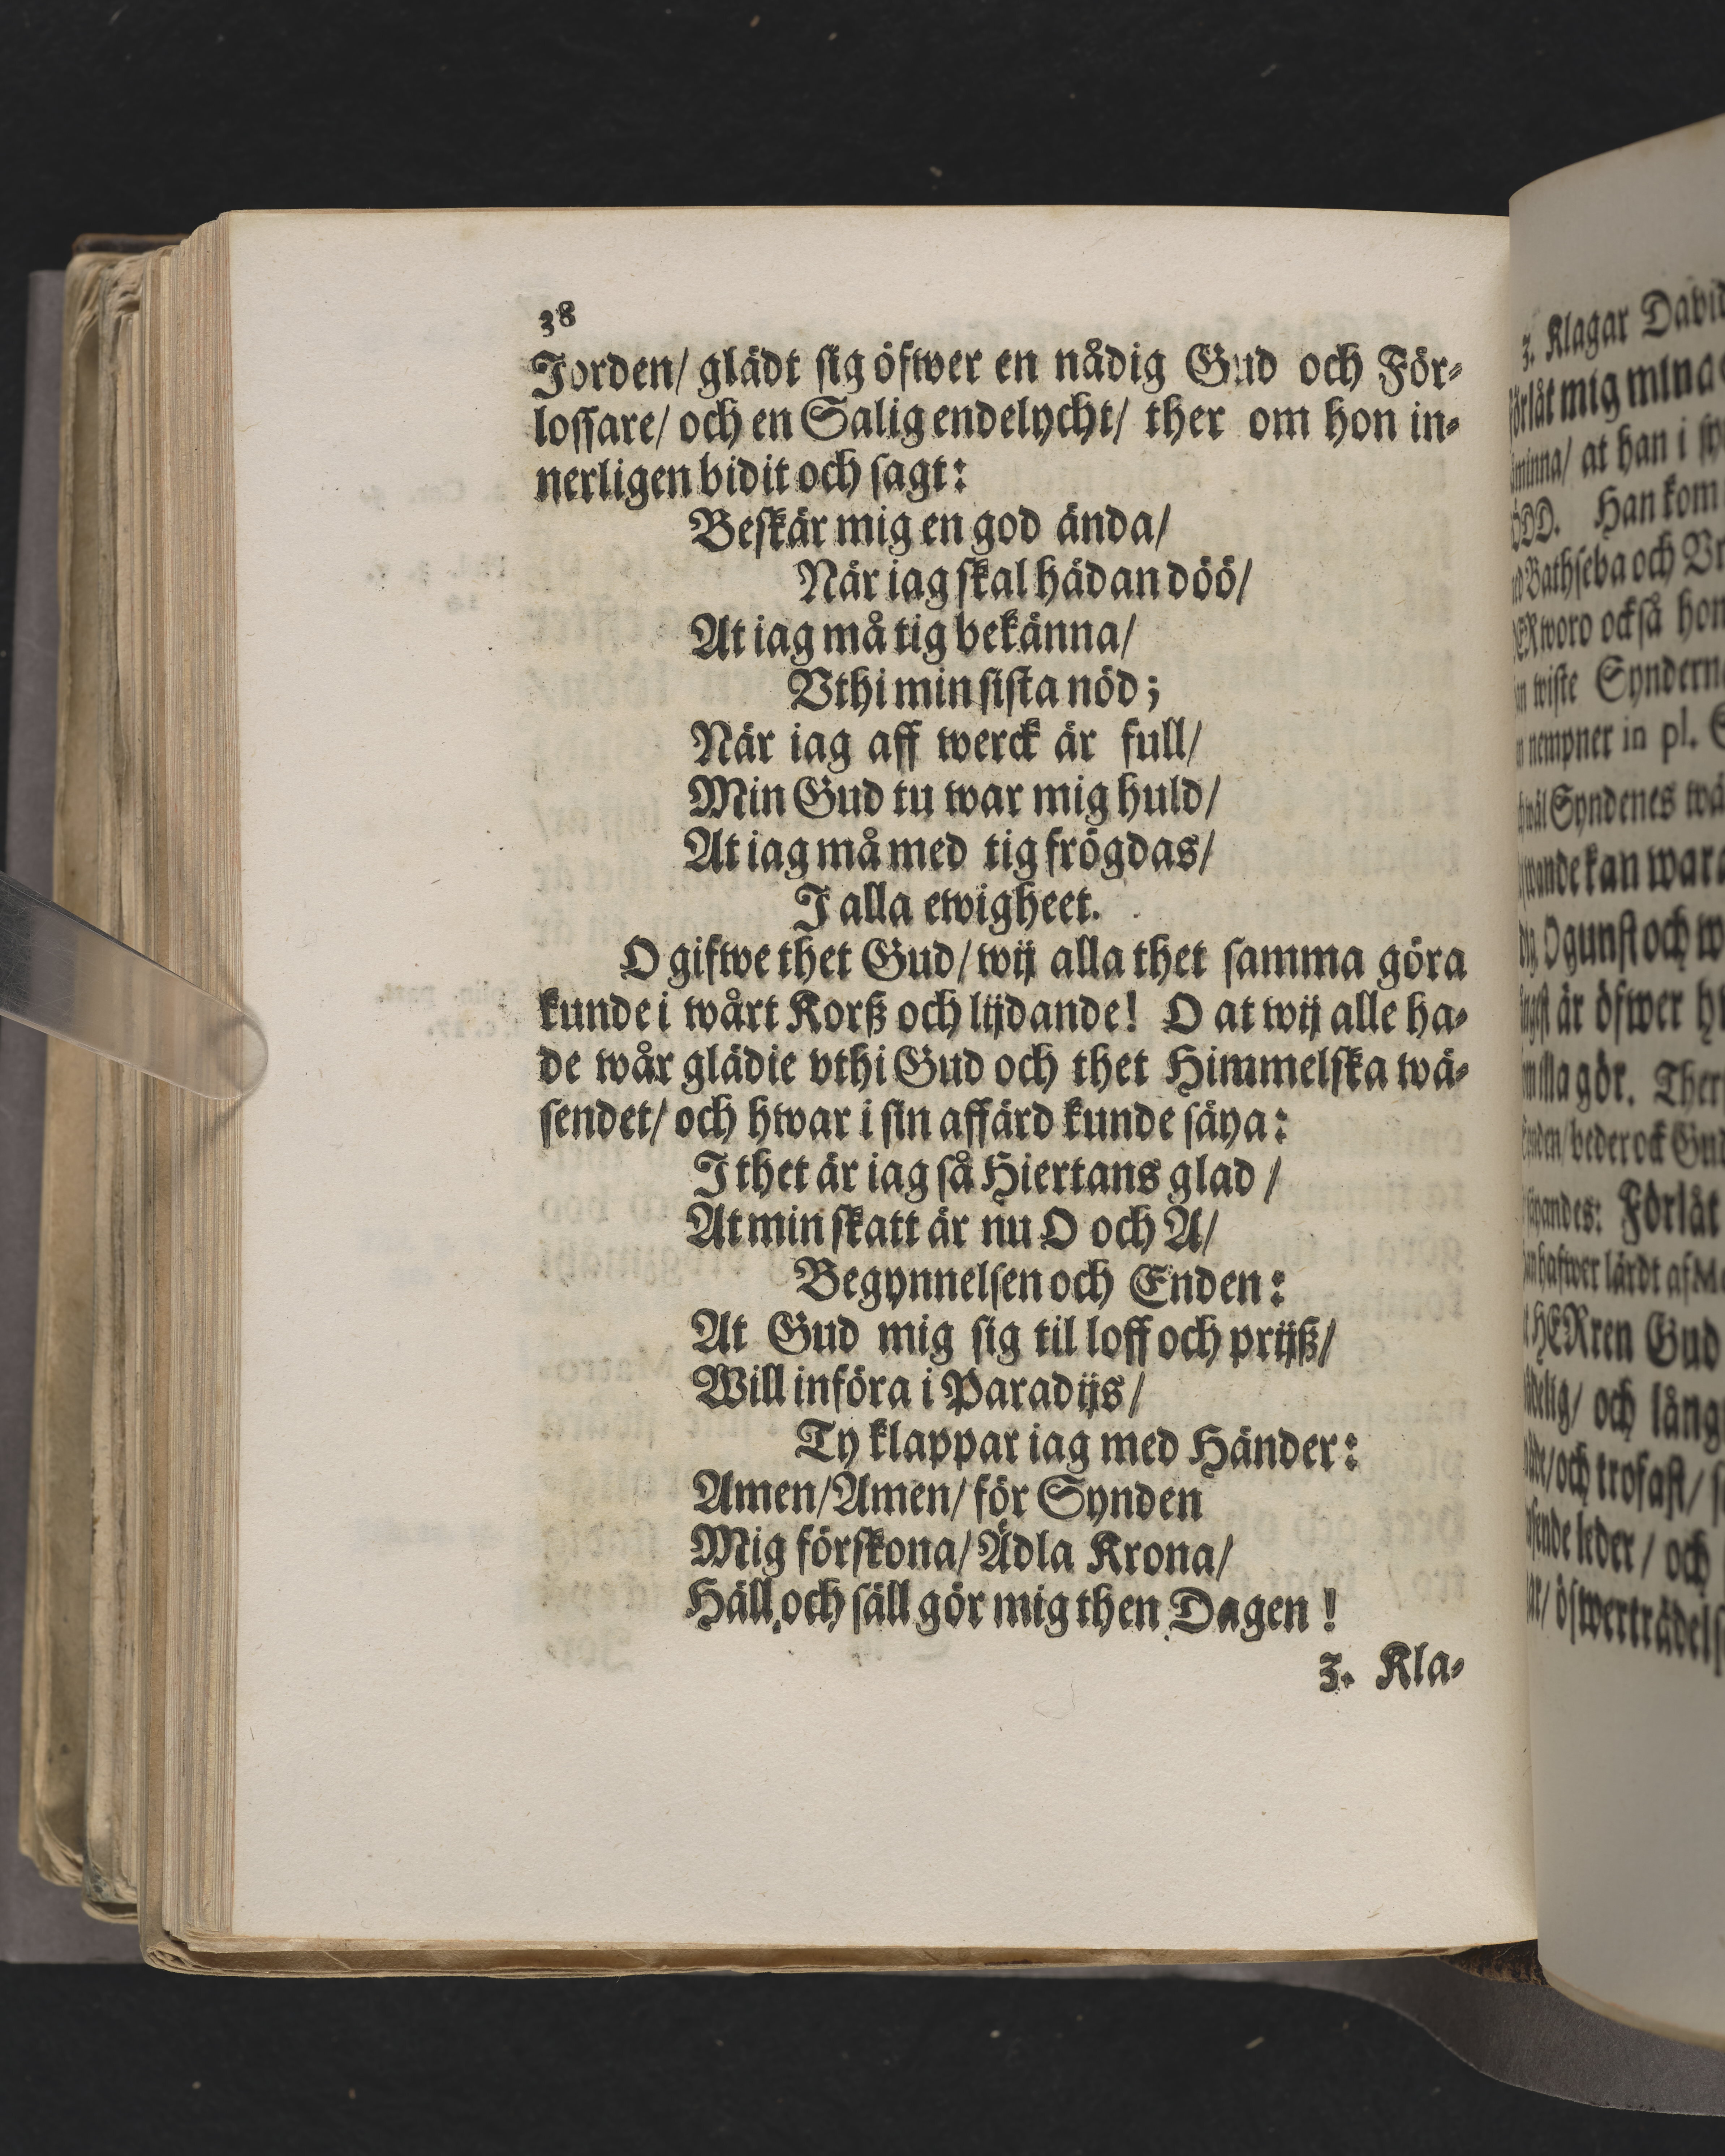 38
Jorden/ glädt sig öfwer en nådig Gud och För-
lossare/ och en Salig endelycht/ ther om hon in-
nerligen bidit och sagt:
Beskär mig en god ända/
När iag skal hädan döö/
At iag må tig bekänna/
Vthi min sista nöd;
När iag aff werck är full/
Min Gud tu war mig huld/
At iag må med tig frögdas/
J alla ewigheet.
O gifwe thet Gud/ wij alla thet samma göra
kunde i wårt Korß och lijdande! O at wij alle ha-
de wår glädie vthi Gud och thet Himmelska wä-
sendet/ och hwar i sin affärd kunde säya:
J thet är iag så Hiertans glad /
At min skatt är nu O och A/
Begynnelsen och Enden:
At Gud mig sig til loff och prijß/
Will införa i Paradijs/
Ty klappar iag med Händer:
Amen/Amen/ för Synden
Mig förskona/ Ädla Krona/
Häll och säll gör mig then Dagen !
3. Kla-
3. Klagar David
mig mina
minna/ at han i
Han kom
Bathseba och
word också
wiste
nempner in pl.
Syndenes
kan wara
Ogunst och
är öfwer
gör. Ther
beder ock Gud
Förlåt
hafwer lärdt af
HERren Gud
och lång
och trofast/
leder / och